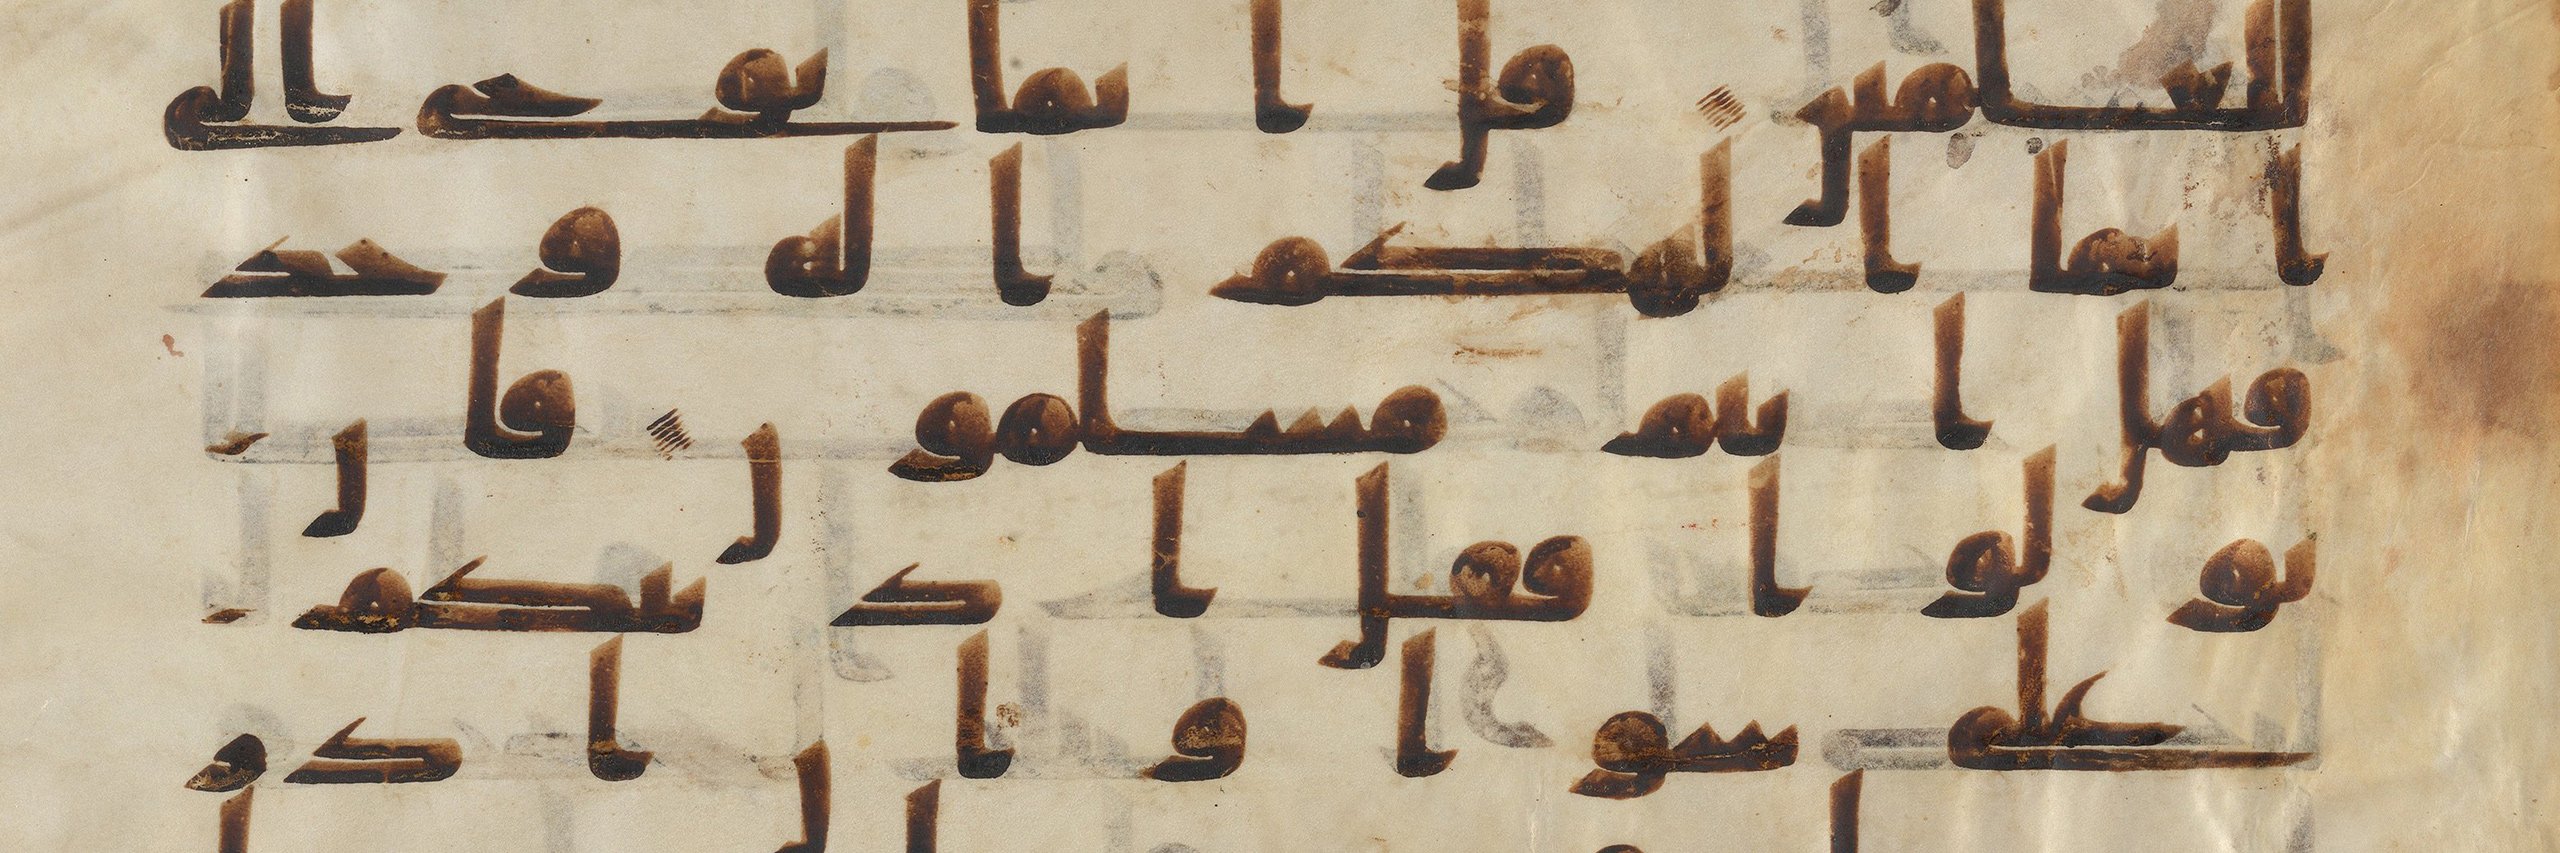 للعلمين قل انما يوحى الى
انما الهكم اله وحد
فهل انتم مسلمون فان
تولوا فقل اذنتكم
على سوا وان ادرى